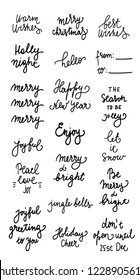 Warm wishes
merry christmas
best wishes
Holly night
hello
from:
to:
merry merry merry
Happy New Year
THE SEASON TO BE JOLLY
Enjoy
joyful
let it snow
Peace love joy
merry & bright
Be merry & bright
jingle bells
joyful greeting to you
Holiday Cheer
don't open until 25st Dec